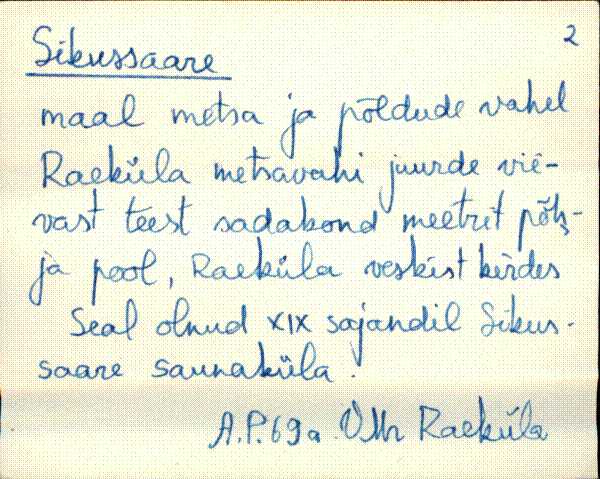 Sikussaare 2
maal metsa ja põldude vahel
Raeküla metsavahi juurde vii-
vast teest sadakond meetrit põh-
ja pool, Raeküla veskist kirdes
Seal olnud XIX sajandil Sikus-
saare saunaküla.
A.P. 69a VMr Raeküla